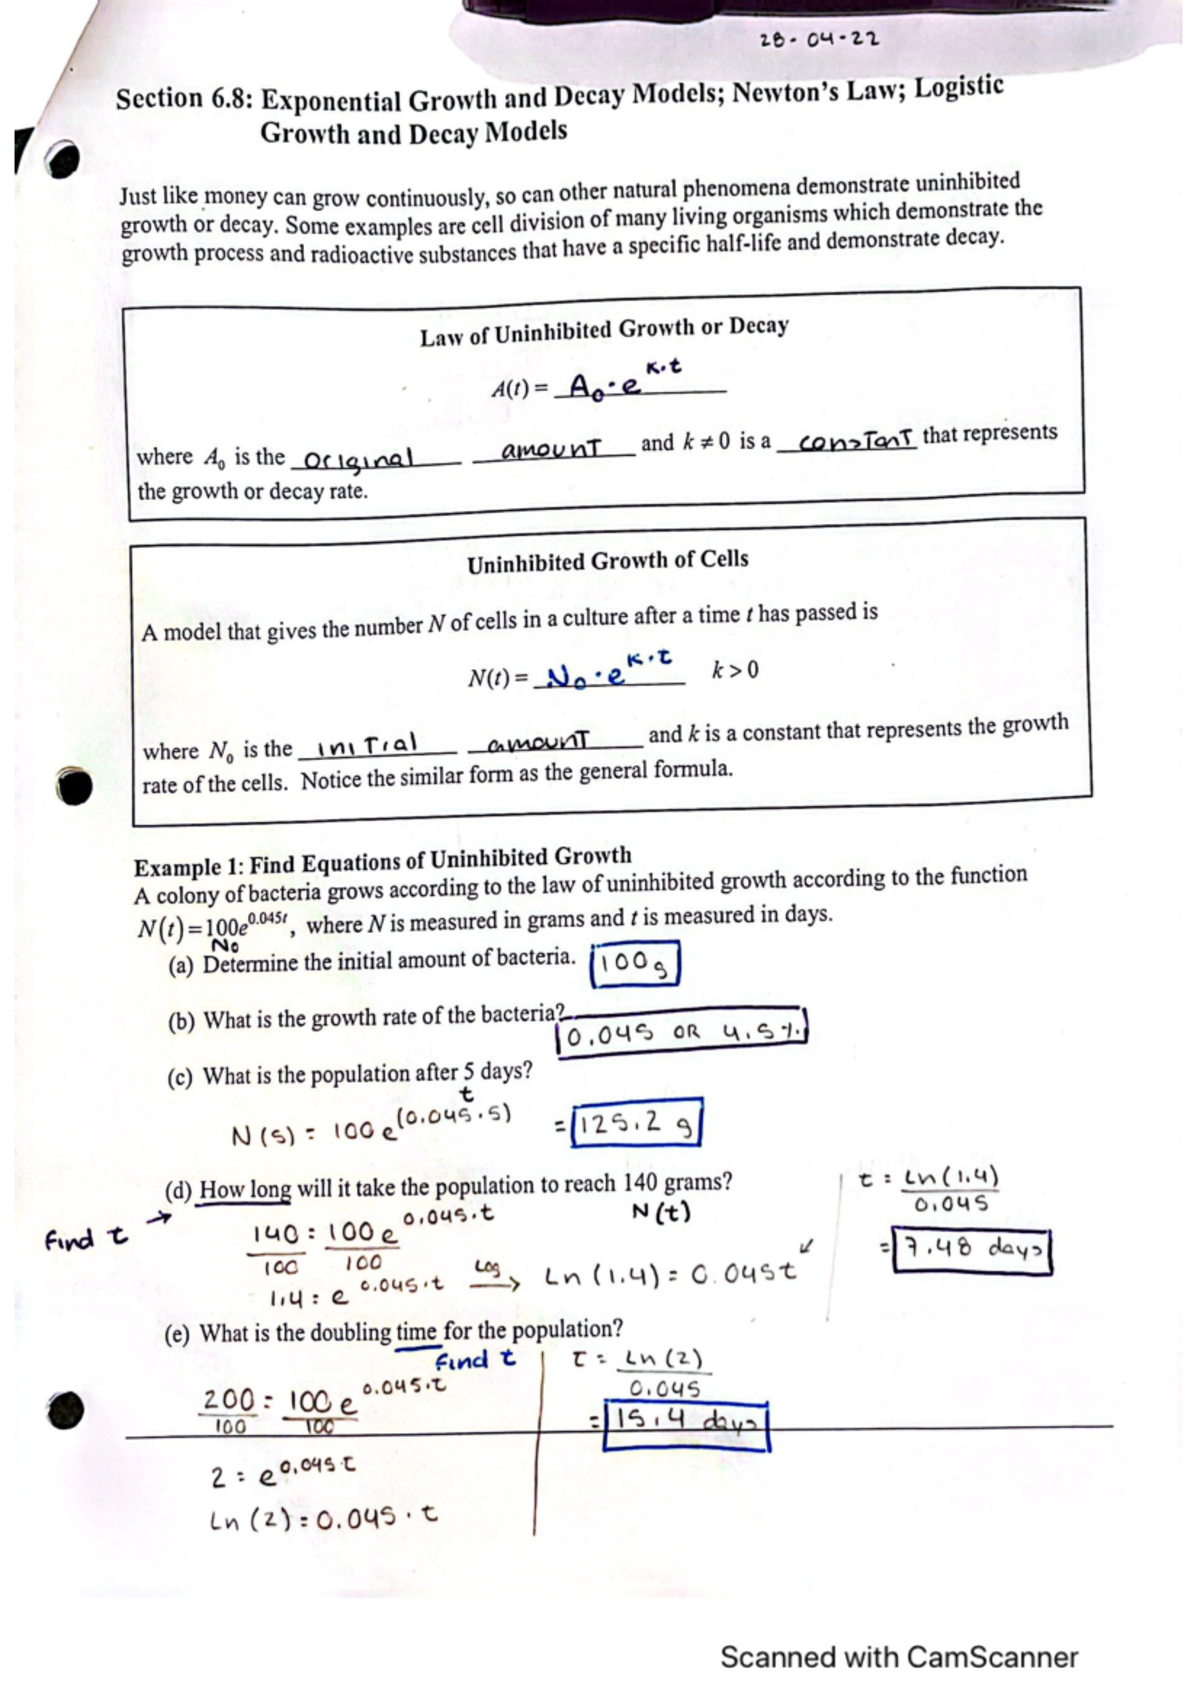 28-04-22
Section 6.8: Exponential Growth and Decay Models; Newton's Law; Logistic
Growth and Decay Models
Just like money can grow continuously, so can other natural phenomena demonstrate uninhibited
growth or decay. Some examples are cell division of many living organisms which demonstrate the
growth process and radioactive substances that have a specific half-life and demonstrate decay.
Law of Uninhibited Growth or Decay
A(t) = A₀·e^k·t
where A₀ is the original amount and k ≠ 0 is a constant that represents
the growth or decay rate.
Uninhibited Growth of Cells
A model that gives the number N of cells in a culture after a time t has passed is
N(t) = N₀·e^k·t k > 0
where N₀ is the initial amount and k is a constant that represents the growth
rate of the cells. Notice the similar form as the general formula.
Example 1: Find Equations of Uninhibited Growth
A colony of bacteria grows according to the law of uninhibited growth according to the function
N(t)=100e^0.045t, where N is measured in grams and t is measured in days.
N₀
(a) Determine the initial amount of bacteria. 100g
(b) What is the growth rate of the bacteria? 0.045 OR 4.5%
(c) What is the population after 5 days?
t
N(5) = 100e^(0.045·5) = 125.2 g
(d) How long will it take the population to reach 140 grams?
N(t)
Find t →
140 = 100e^0.045·t
100 100
1.4 = e^0.045·t Log → Ln(1.4) = 0.045t
t = Ln(1.4)
0.045
= 7.48 days
(e) What is the doubling time for the population?
Find t
200 = 100e^0.045·t
100 100
2 = e^0.045t
Ln(2) = 0.045·t
t = Ln(2)
0.045
= 15.4 days
Scanned with CamScanner